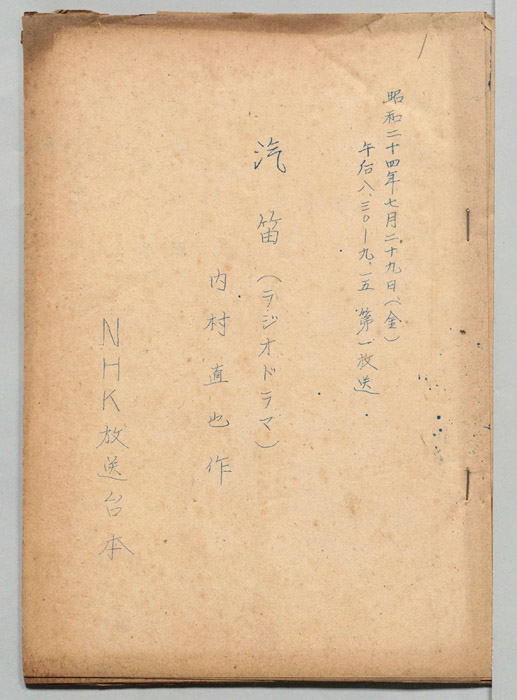 昭和二十四年七月二十九日(金)
午后八.三〇ー九.一五 第一放送
汽笛(ラジオドラマ)
内村直也作
NHK放送台本